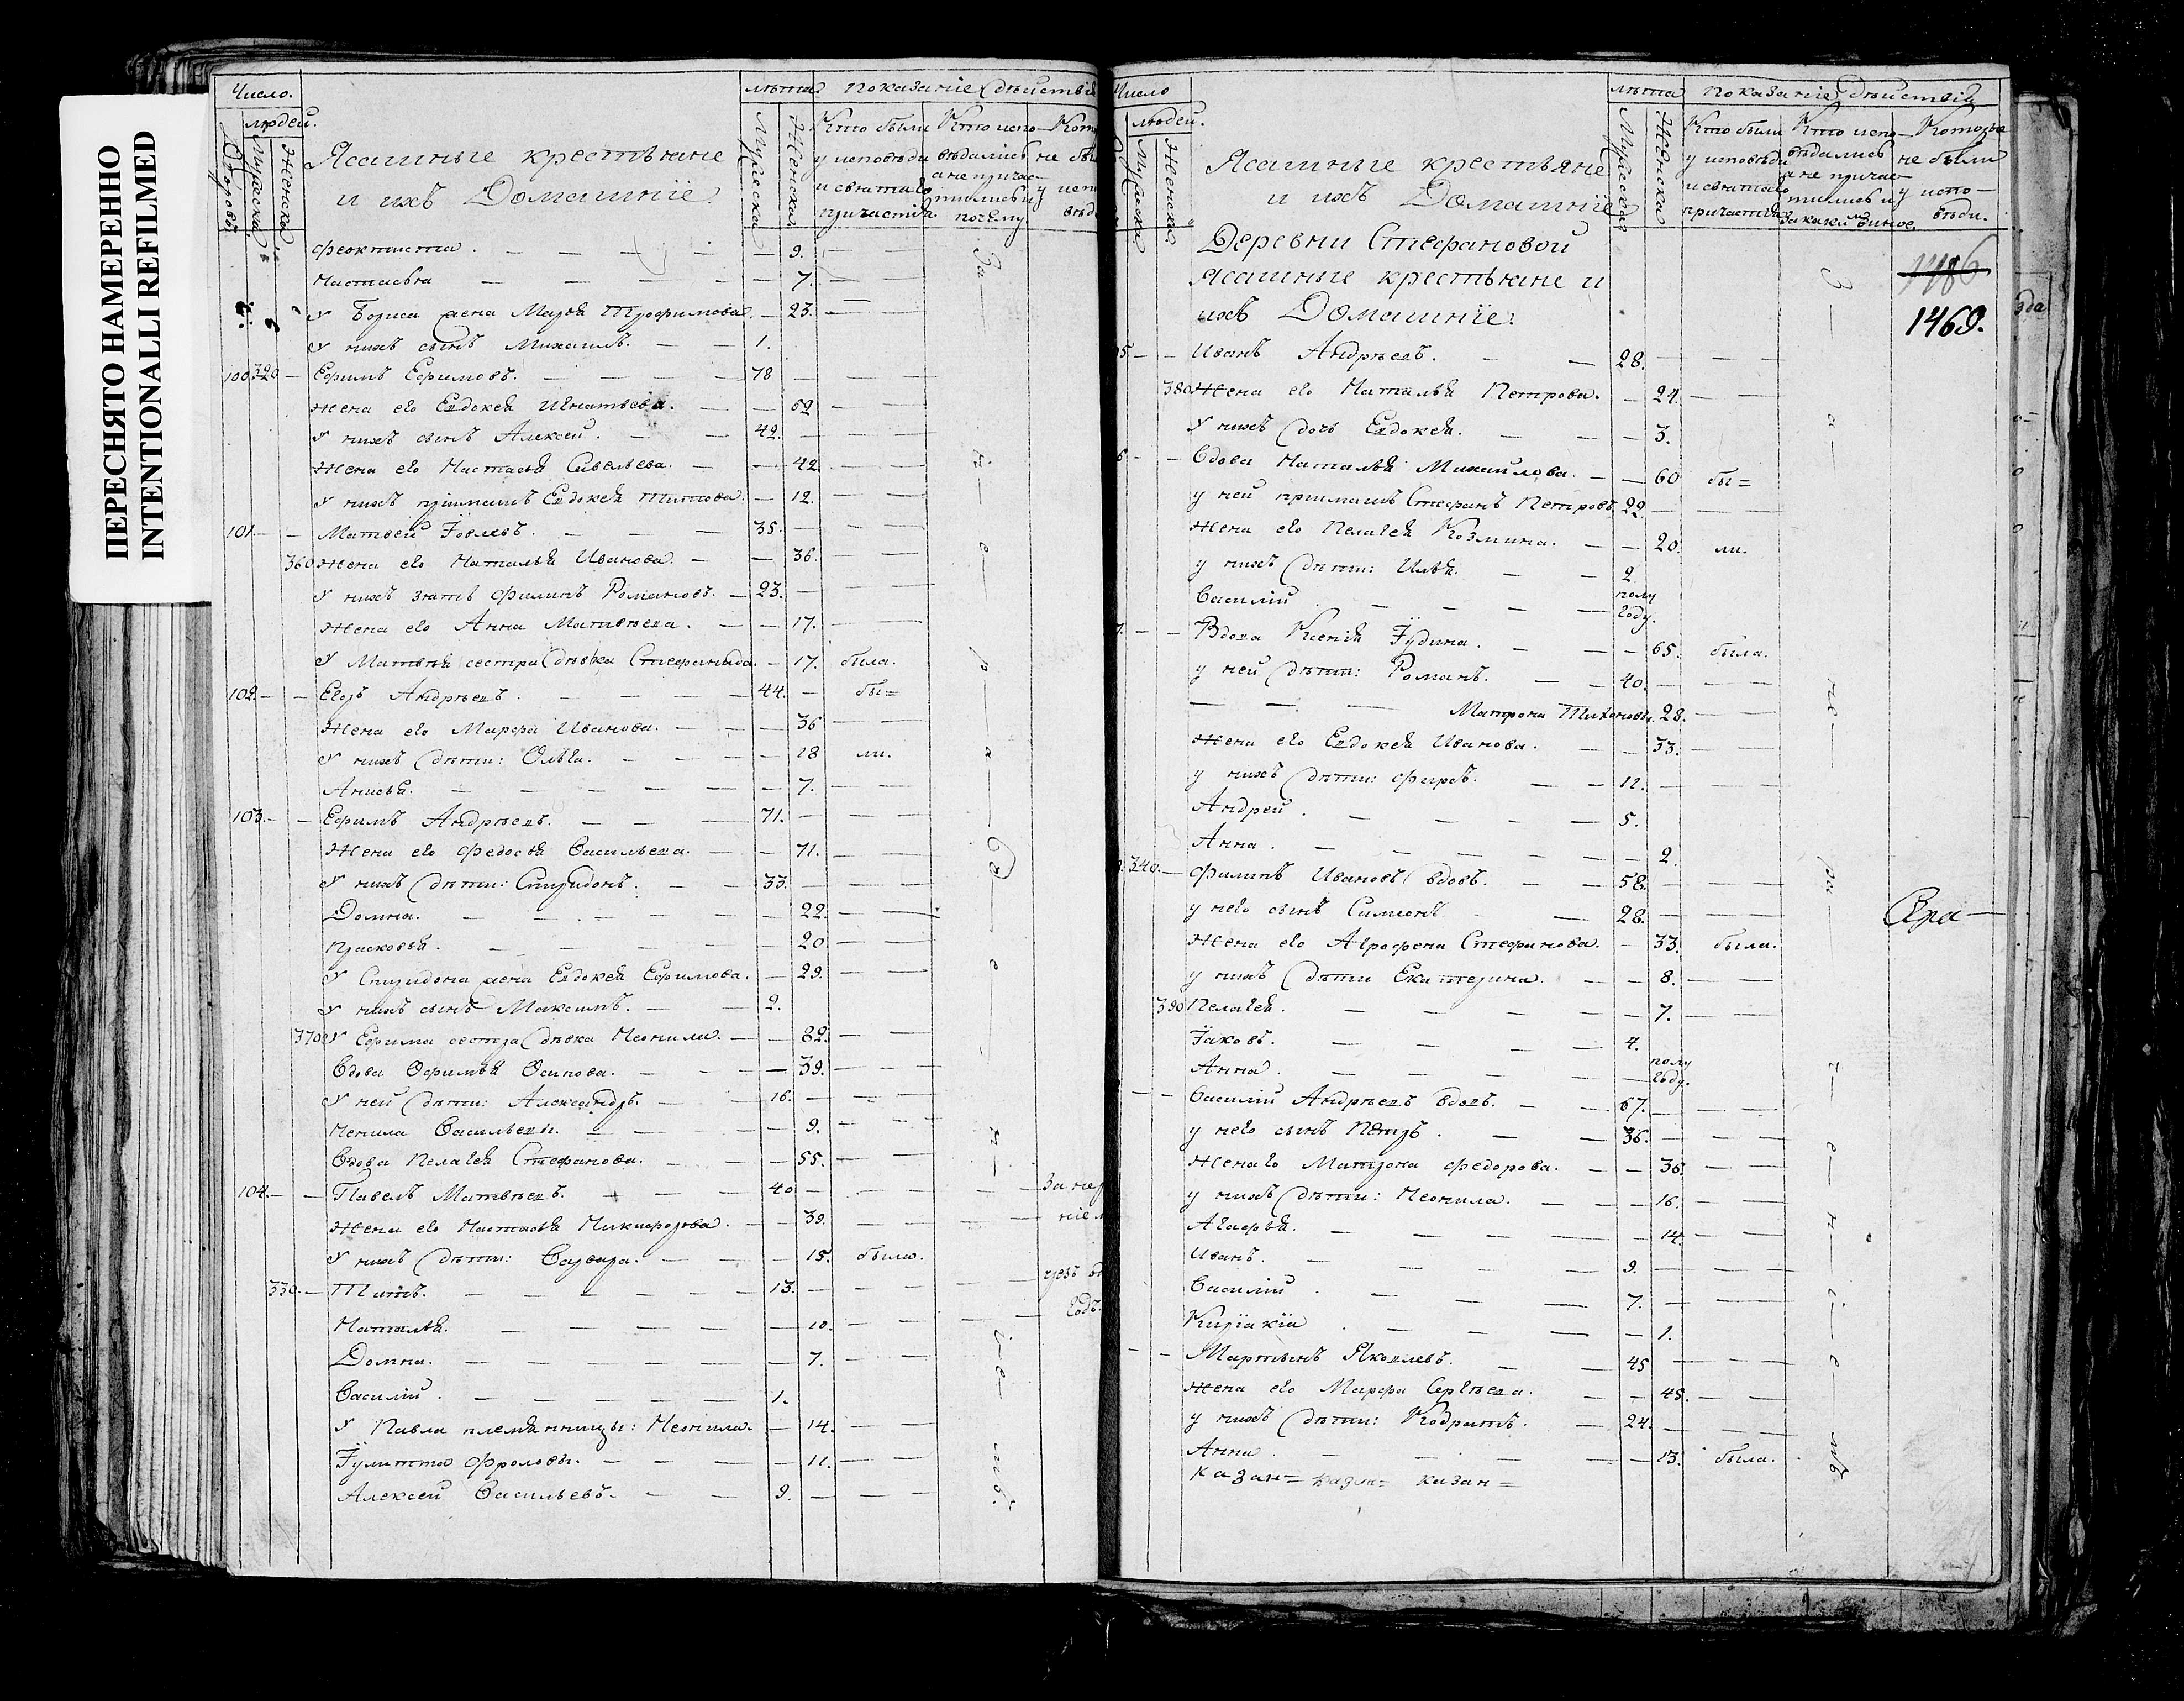 ПЕРЕСНЯТО НАМЕРЕННО
INTENTIONALLI REFILMED
Число. лѣта Показаніе дѣйствія
людей.
Дворовъ Мужеска Женска
Ясашные крестьяне
и ихъ Домашніе.
Мужеска Женска
Кто были у исповѣди и святаго причастія
Кто испо-вѣдались а не причас-тились и почему
не бы
Феоктиста. 9.
Настасья 7.
У Бориса жена Марья Трофимова. 23.
У нихъ сынъ Михаилъ. 1.
100. 320 Ефимъ Ефимовъ. 78
Жена его Евдокея Игнатьева. 62
У нихъ сынъ Алексей. 42.
Жена его Настасья Савельева. 42.
У нихъ приимашъ Евдокея Титова. 12.
101. Матвей Іовлевъ. 35.
360 Жена его Наталья Иванова. 36.
У нихъ зять Филипъ Романовъ. 23.
Жена его Анна Матвѣева. 17.
У Матвѣя сестра дѣвка Стефанида. 17. была.
102. Егоръ Андрѣевъ. 44. бы=
Жена его Марфа Иванова. 36
У нихъ дѣти: Ольга. 18 ли.
Анисья. 7.
103. Ефимъ Андрѣевъ. 71.
Жена его Федосья Васильева. 71.
У нихъ дѣти: Спиридонъ. 33.
Домна. 22.
Прасковья. 20.
У Спиридона жена Евдокея Ефимова. 29.
У нихъ сынъ Максимъ. 2.
370 У Ефима сестра дѣвка Неонила. 82.
Вдова Офимья Осипова. 39.
У ней дѣти: Александръ. 16.
Ненила Васильевы. 9.
Вдова Пелагея Стефанова. 55.
104. Павелъ Матвѣевъ. 40
Жена его Настасья Никифорова. 39.
У нихъ дѣти: Варвара. 15. была.
330. Титъ. 13.
Наталья. 10.
Домна. 7.
Василій. 1.
У Павла племянницы: Неонила. 14.
Іулитта Фроловы. 11.
Алексей Васильевъ. 9.
Число лѣта Показаніе дѣйствія
людей.
Мужеска Женска
Ясашные крестьяне
и ихъ Домашніе
Мужеска Женска
Кто были у исповѣди и святаго причастія
Кто испо-вѣдались а не причас-тились и за какимъ виною.
Которые не были у испо-вѣди.
Деревни Стефановой
Ясашные крестьяне и
ихъ Домашніе.
1486
1469.
Иванъ Андрѣевъ. 28.
380 Жена его Наталья Петрова. 24.
У нихъ дочь Евдокея. 3.
Вдова Наталья Михайлова. 60 бы=
у ней приимашъ Стефанъ Петровъ. 22.
Жена его Пелагея Козмина. 20. ли.
у нихъ дѣти: Илья. 2.
Василій полу году.
Вдова Ксенія Іудина. 65. была.
у ней дѣти: Романъ. 40.
Матрона Тихоновы. 28.
Жена его Евдокея Иванова. 33.
у нихъ дѣти: Фирсъ. 12.
Андрей. 5.
Анна. 2.
340. Филипъ Ивановъ вдовъ. 58.
у него сынъ Симеонъ 28.
Жена его Агрофена Стефанова. 33. была.
у нихъ дѣти Екатерина. 8.
390 Пелагея. 7.
Іаковъ. 4.
Анна. полу году.
Василій Андрѣевъ вдовъ. 67.
у него сынъ Петръ. 36.
Жена го Матрона Федорова. 36.
у нихъ дѣти: Неонила. 16.
Агафья. 14.
Иванъ. 9.
Василій. 7.
Киріакіа 1.
Мартынъ Яковлевъ. 45
Жена его Марфа Сергѣева. 45.
у нихъ дѣти: Кодратъ. 24.
Анна. 13. была.
казан= казан= казан=